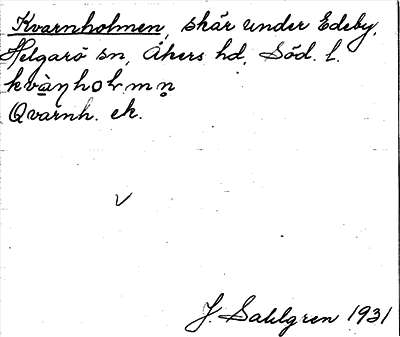 Kvarnholmen, skär under Edeby,
Helgarö sn, Åkers hd, Söd. l.
kvàn̥holmn̥
Qvarnh. ek.
V
J. Sahlgren 1931